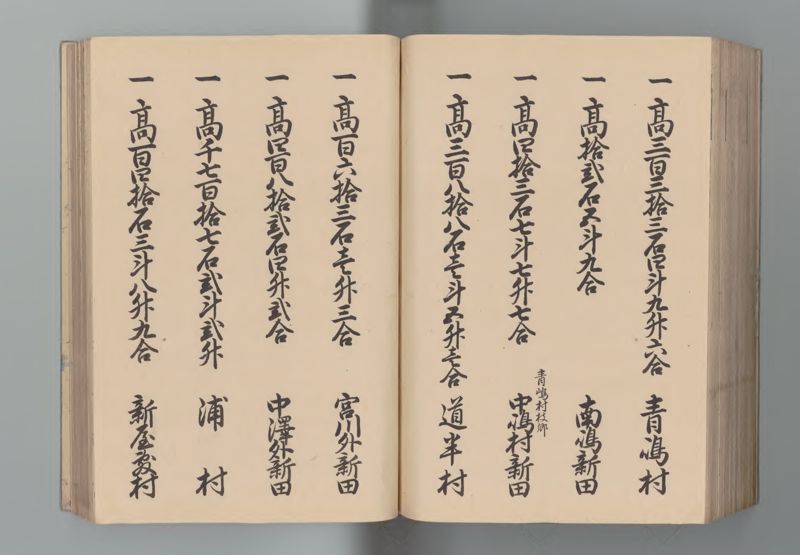 一 高三百三拾三石四斗九升六合 青嶋村
一 高拾弐石五斗九合 南嶋新田
一 高四拾三石七斗七升七合 青嶋村枝郷 中嶋村新田
一 高三百八拾八石壱斗五升壱合 道半村
一 高百六拾三石壱升三合 宮川外新田
一 高四百八拾弐石四升弐合 中澤外新田
一 高千七百拾七石弐斗弐升 浦村
一 高百四拾石三斗八升九合 新屋敷村